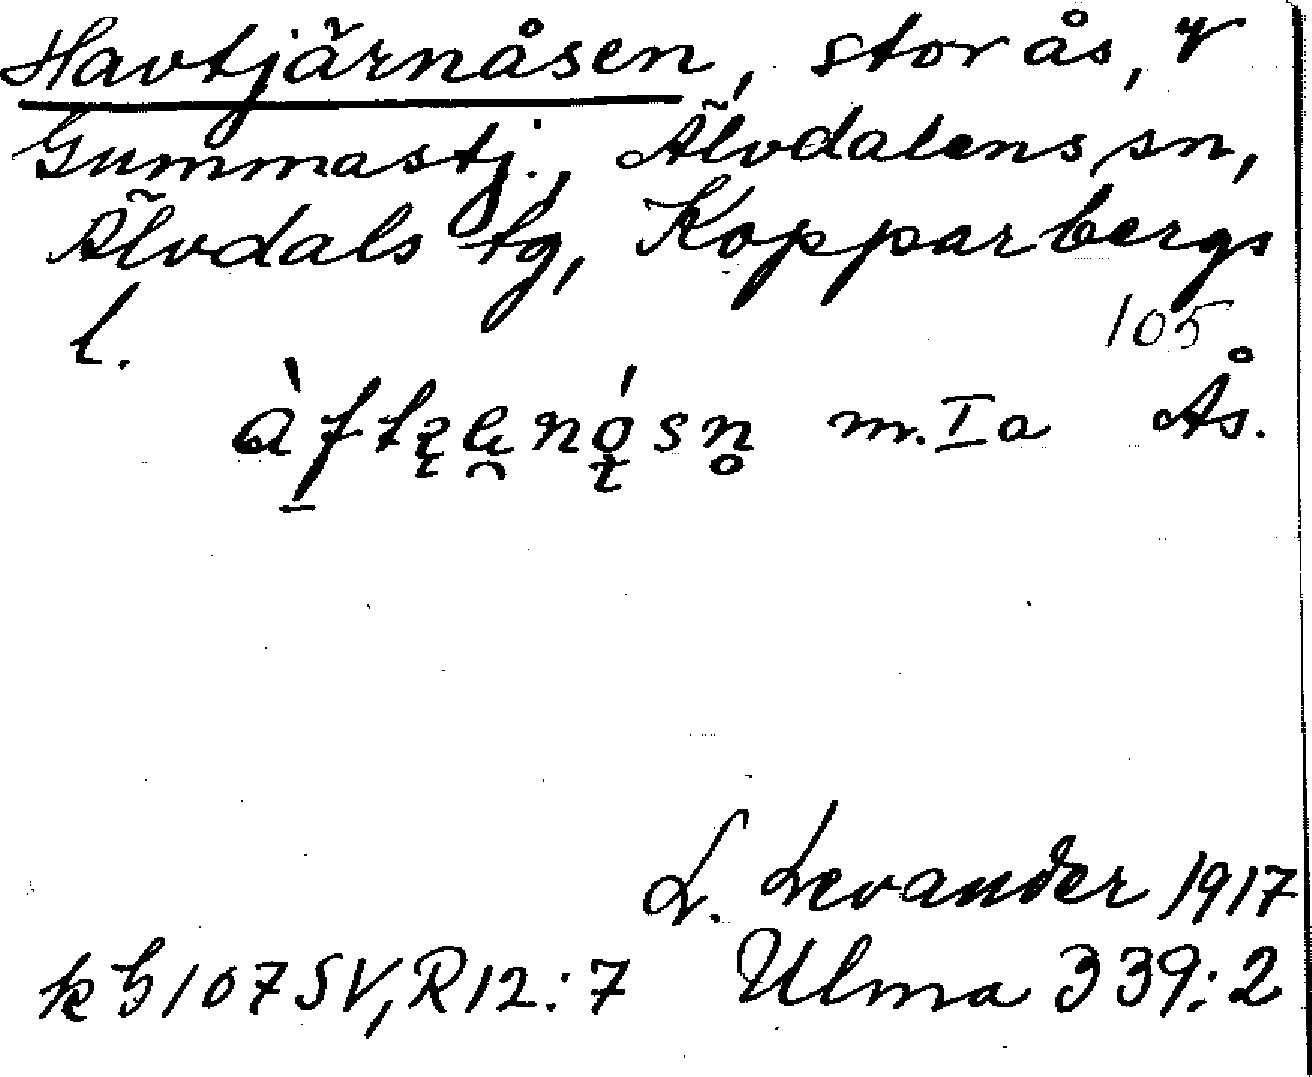 Havtjärnåsen, stor ås, v
Gummastj., Älvdalens sn,
Älvdals tg, Kopparbergs
l.
105
m. Ia Ås.
L. Levander 1917
kb 107 SV, R12:7 Ulma 339:2